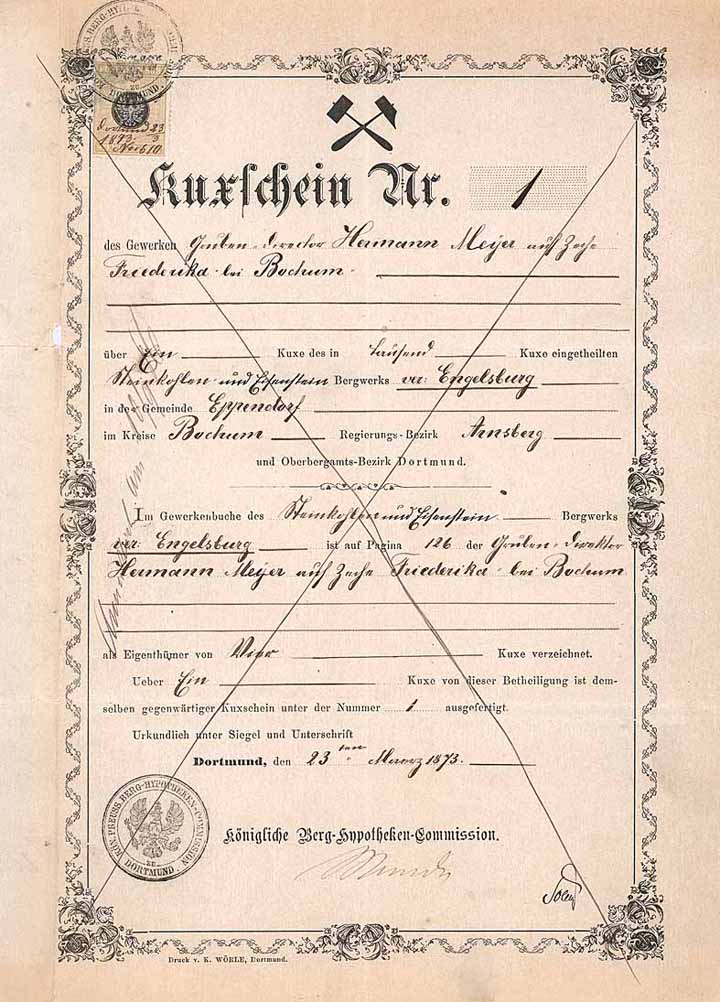 KÖN. PREUSS. BERG-HYP.
ZU DORTMUND
Dortmund 23
1873
Kuxschein Nr. 1
des Gewerken Gruben-Director Hermann Meyer auf Zeche
Friederika bei Bochum
über Ein Kuxe des in tausend Kuxe eingetheilten
Steinkohlen- und Eisenstein Bergwerks ver: Engelsburg
in der Gemeinde Eppendorf
im Kreise Bochum Regierungs-Bezirk Arnsberg
und Oberbergamts-Bezirk Dortmund.
Im Gewerkenbuche des Steinkohlen und Eisenstein Bergwerks
ver: Engelsburg ist auf Pagina 126 der Gruben-Direktor
Hermann Meyer auf Zeche Friederika bei Bochum
als Eigenthümer von Vier Kuxe verzeichnet.
Ueber Ein Kuxe von dieser Betheiligung ist dem-
selben gegenwärtiger Kuxschein unter der Nummer 1 ausgefertigt.
Urkundlich unter Siegel und Unterschrift
Dortmund, den 23ten Maerz 1873.
KÖN. PREUSS. BERG-HYPOTHEKEN-COMMISSION
ZU DORTMUND
Königliche Berg-Hypotheken-Commission.
Druck v. K. WÖRLE, Dortmund.